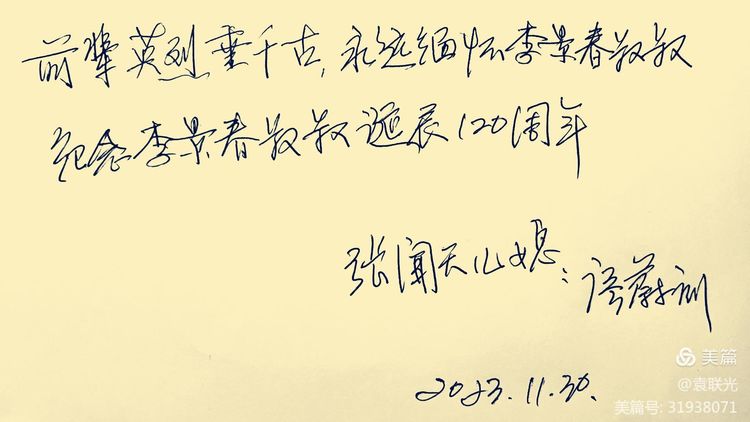 前辈英烈垂千古,永远缅怀李景春叔叔
纪念李景春叔叔诞辰120周年
张闻天儿媳:
2023.11.30.
美篇
@袁联光
美篇号: 31938071